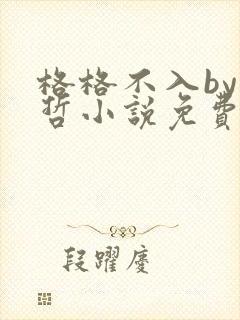 格格不入by
哲小說免費
段躍慶